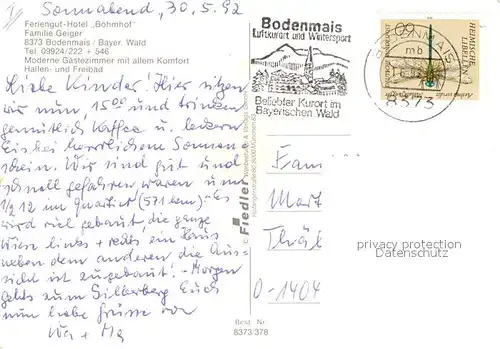 Sonnabend, 30.5.92
Feriengut-Hotel „Böhmhof"
Familie Geiger
8373 Bodenmais / Bayer. Wald
Tel. 09924/222 + 546
Moderne Gästezimmer mit allem Komfort
Hallen- und Freibad
Liebe Kinder! Hier sitzen
wir nun, 15 00 und trinken
gemütlich Kaffee u. leckern
Eis bei herrlichem Sonnen-
schein. Wir sind gut und
schnell gefahren, waren um
1/2 12 im Quartier (571 km) - Es
wird viel gebaut, die ganze
Wiese links + rechts ein Haus
neben dem anderen die Aus-
sicht ist zugebaut! - Morgen
gehts zum Silberberg Euch
nun liebe Grüsse von
Bodenmais
Luftkurort und Wintersport
Beliebter Kurort im
Bayerischen Wald
BODENMAIS
mb
8373
60
HEIMISCHE
LIBELLEN
© Fiedler
Fam
Thäl
O-1404
privacy protection
Datenschutz
Best. Nr.
8373/378